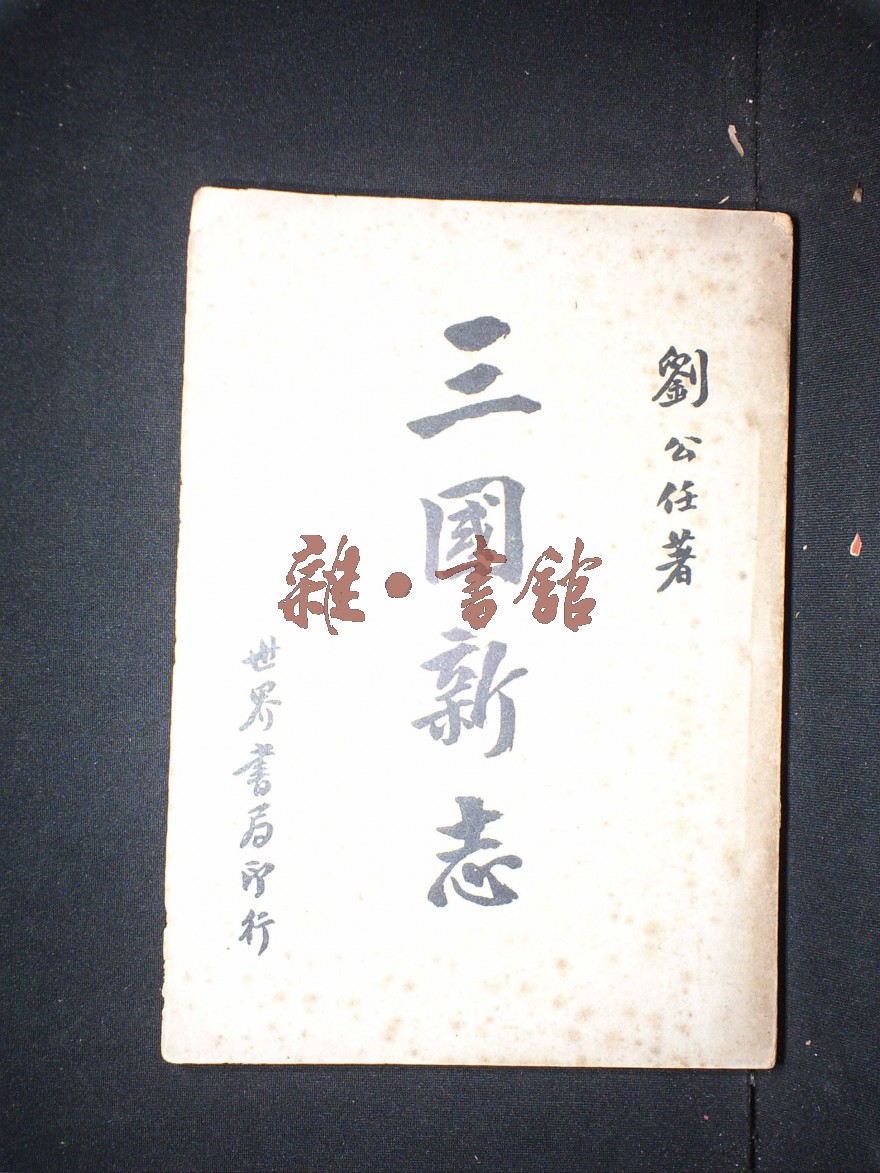 劉公任著
三國新志
世界書局印行
雜·書館